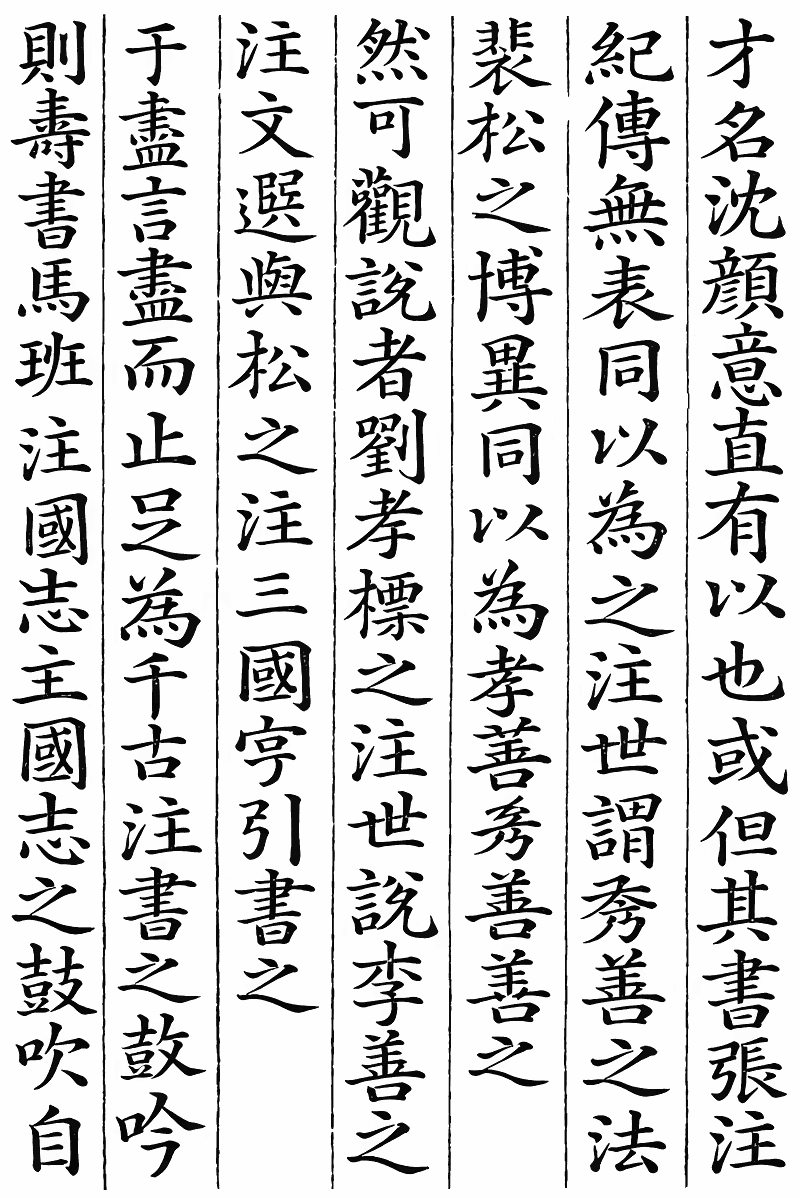 才名沈顔意直有以也或但其書張注
紀傳無表同以為之注世謂秀善之法
裴松之博異同以為孝善秀善善之
然可觀說者劉孝標之注世說李善之
注文選與松之注三國字引書之
于盡言盡而止足為千古注書之鼓吟
則壽書馬班注國志主國志之鼓吹自